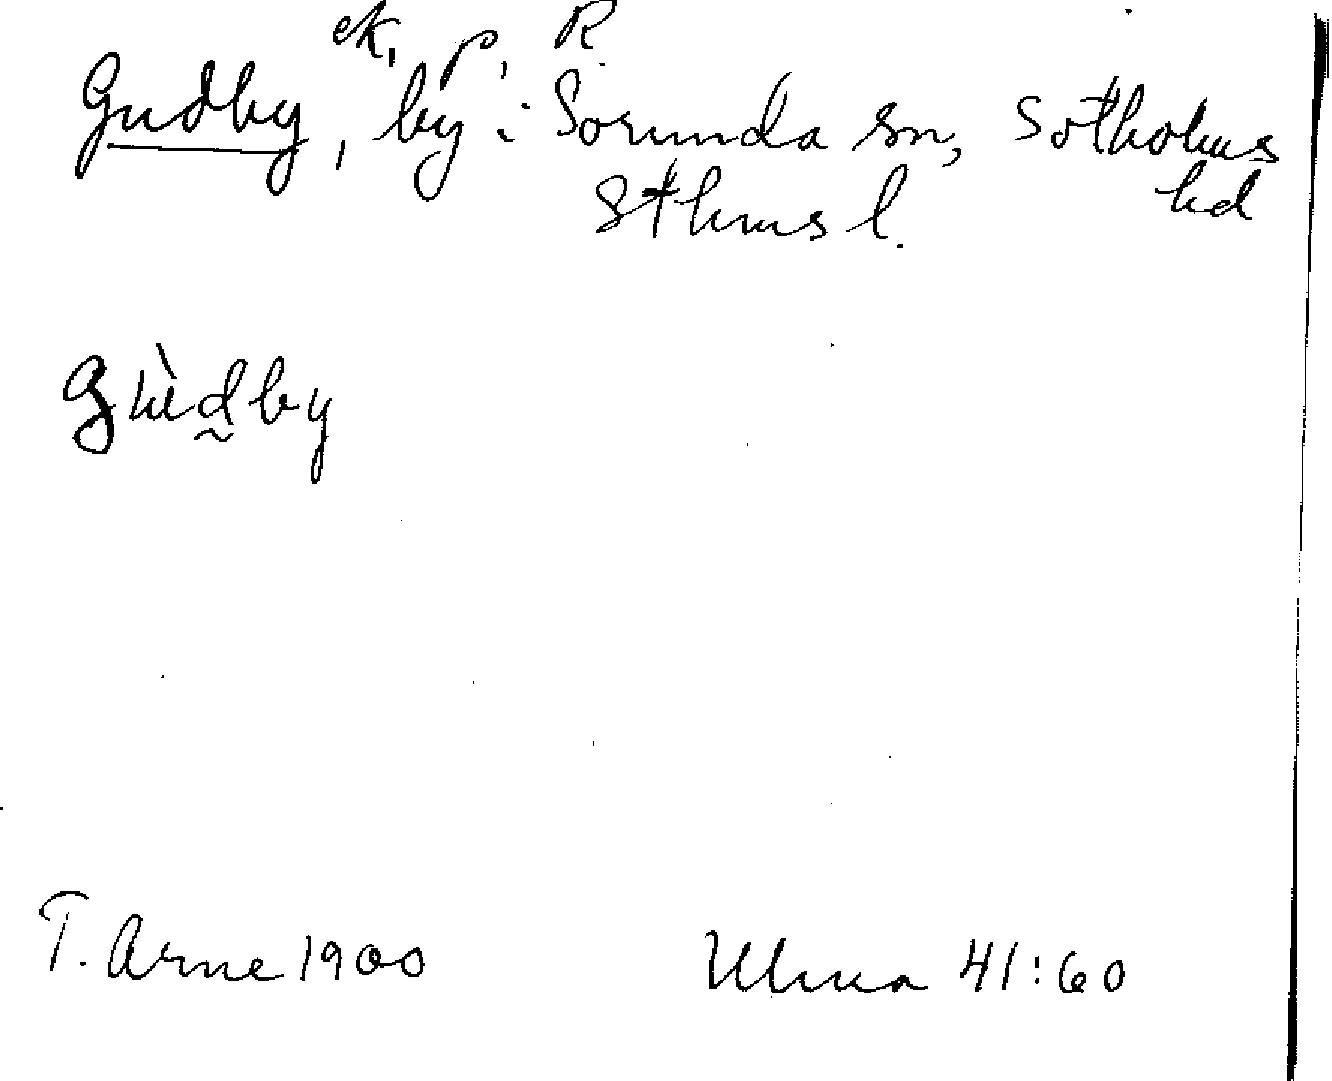 ek, p, R.
Gudby, by i Sorunda sn, Sotholms
Sthms l. hd
Gùd̰by
T. Arne 1900 Ulma 41:60